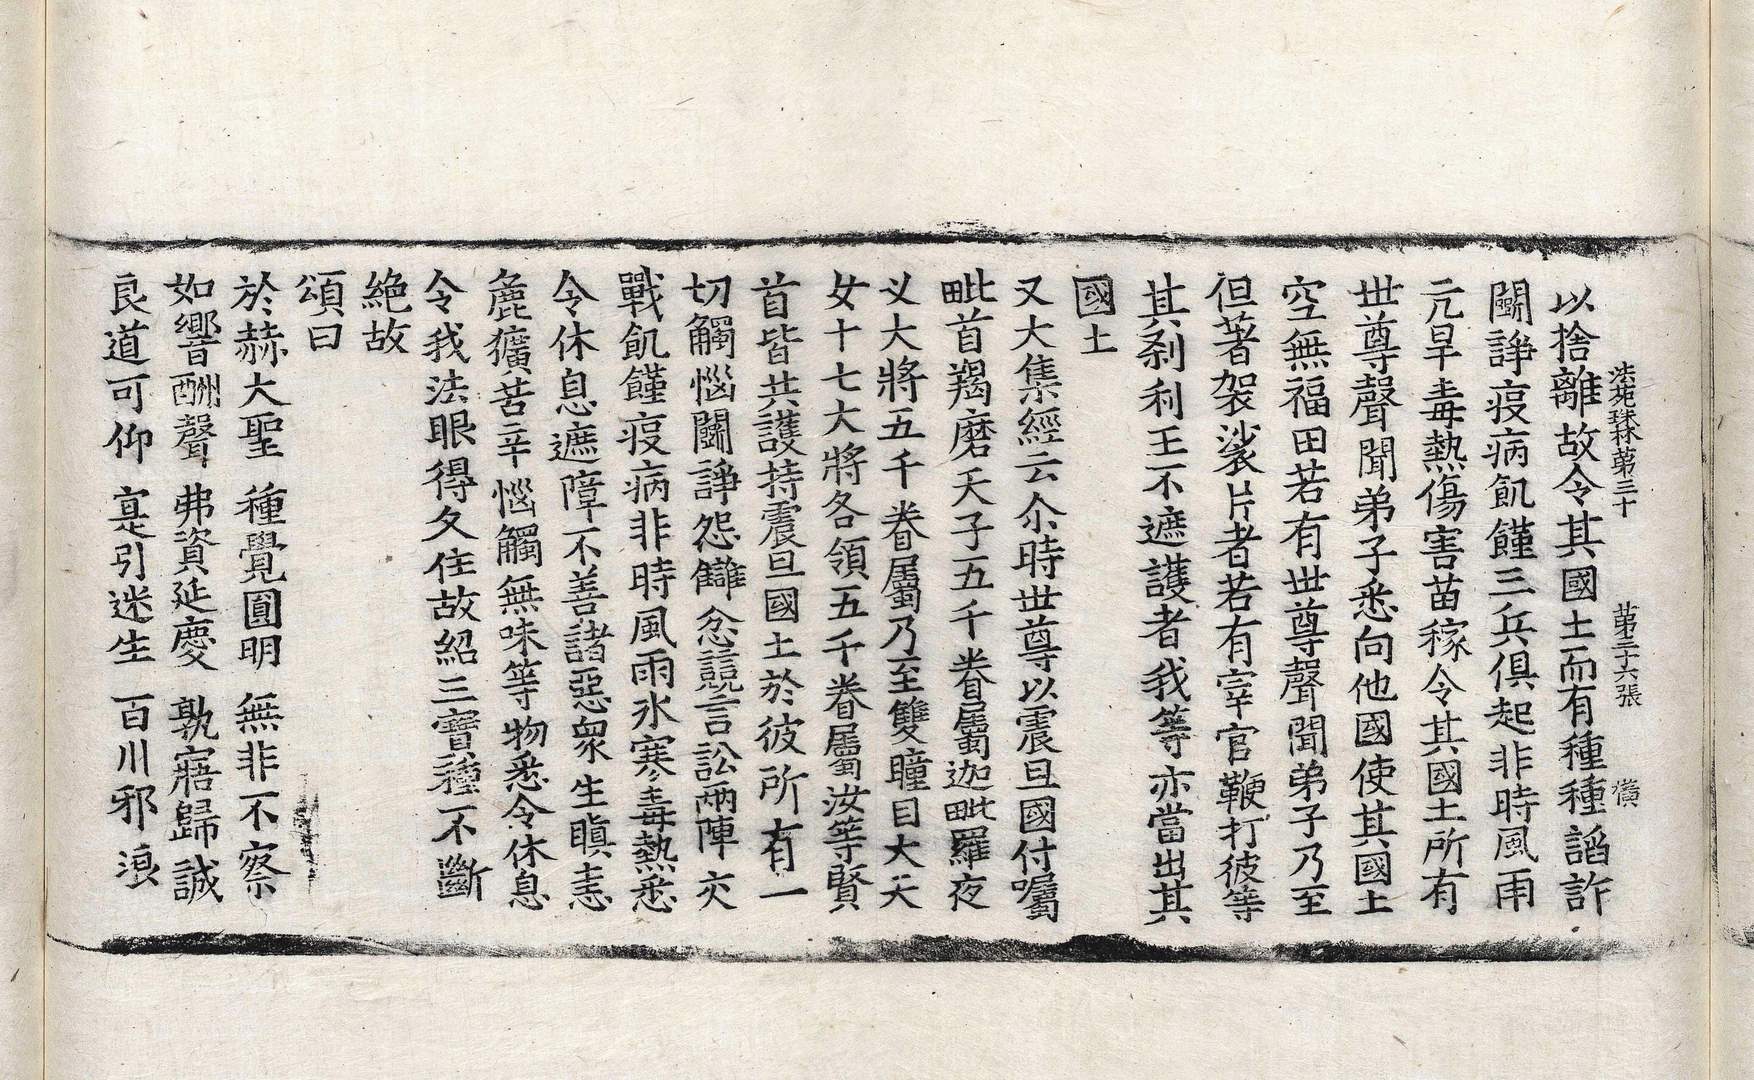 法苑珠林第三十　第三十六張　癀
以捨離故令其國土而有種種諂詐
鬪諍疫病飢饉三兵俱起非時風雨
亢旱毒熱傷害苗稼令其國土所有
世尊聲聞弟子悉向他國使其國土
空無福田若有世尊聲聞弟子乃至
但著袈裟片者若有宰官鞭打彼等
其剎利王不遮護者我等亦當出其
國土
又大集經云尒時世尊以震旦國付囑
毗首羯磨天子五千眷屬迦毗羅夜
义大將五千眷屬乃至雙瞳目大天
女十七大將各領五千眷屬汝等賢
首皆共護持震旦國土於彼所有一
切觸惱鬪諍怨讎忿競言訟兩陣交
戰飢饉疫病非時風雨氷寒毒熱悉
令休息遮障不善諸惡衆生瞋恚
麁獷苦辛惱觸無味等物悉令休息
令我法眼得久住故紹三寶種不斷
絶故
頌曰
於赫大聖　種覺圓明　無非不察
如響酬聲　弗資延慶　孰寤歸誠
良道可仰　寔引迷生　百川邪浪